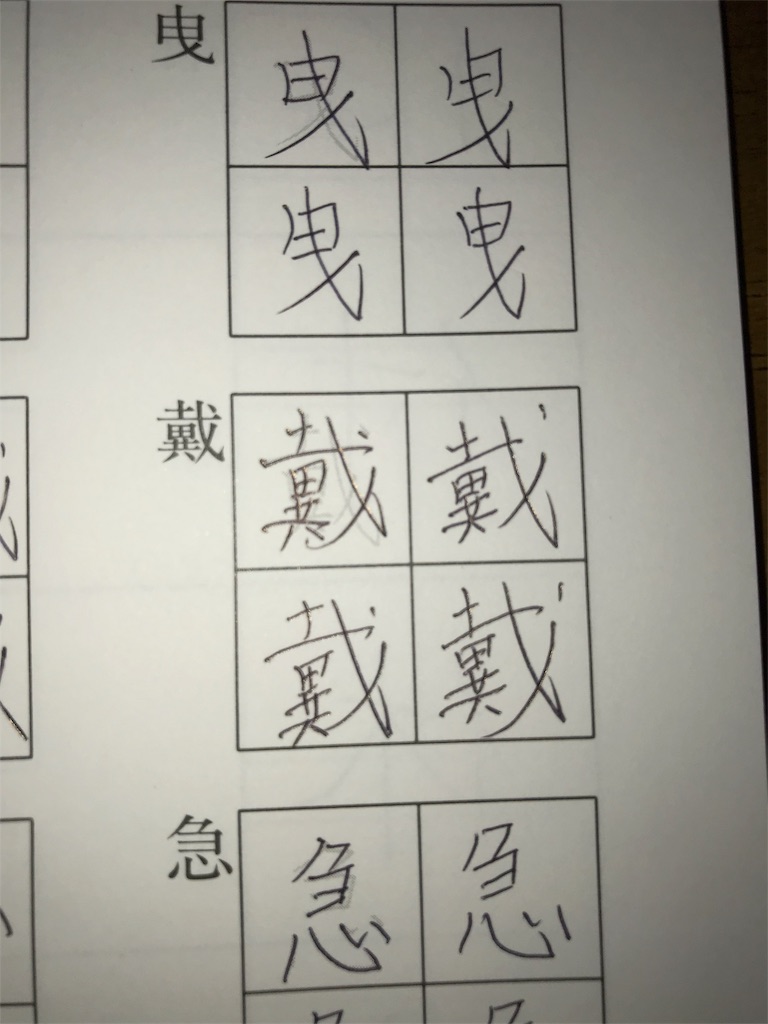 曳 曳 曳
曳 曳
戴 戴 戴
戴 戴
急 急 急